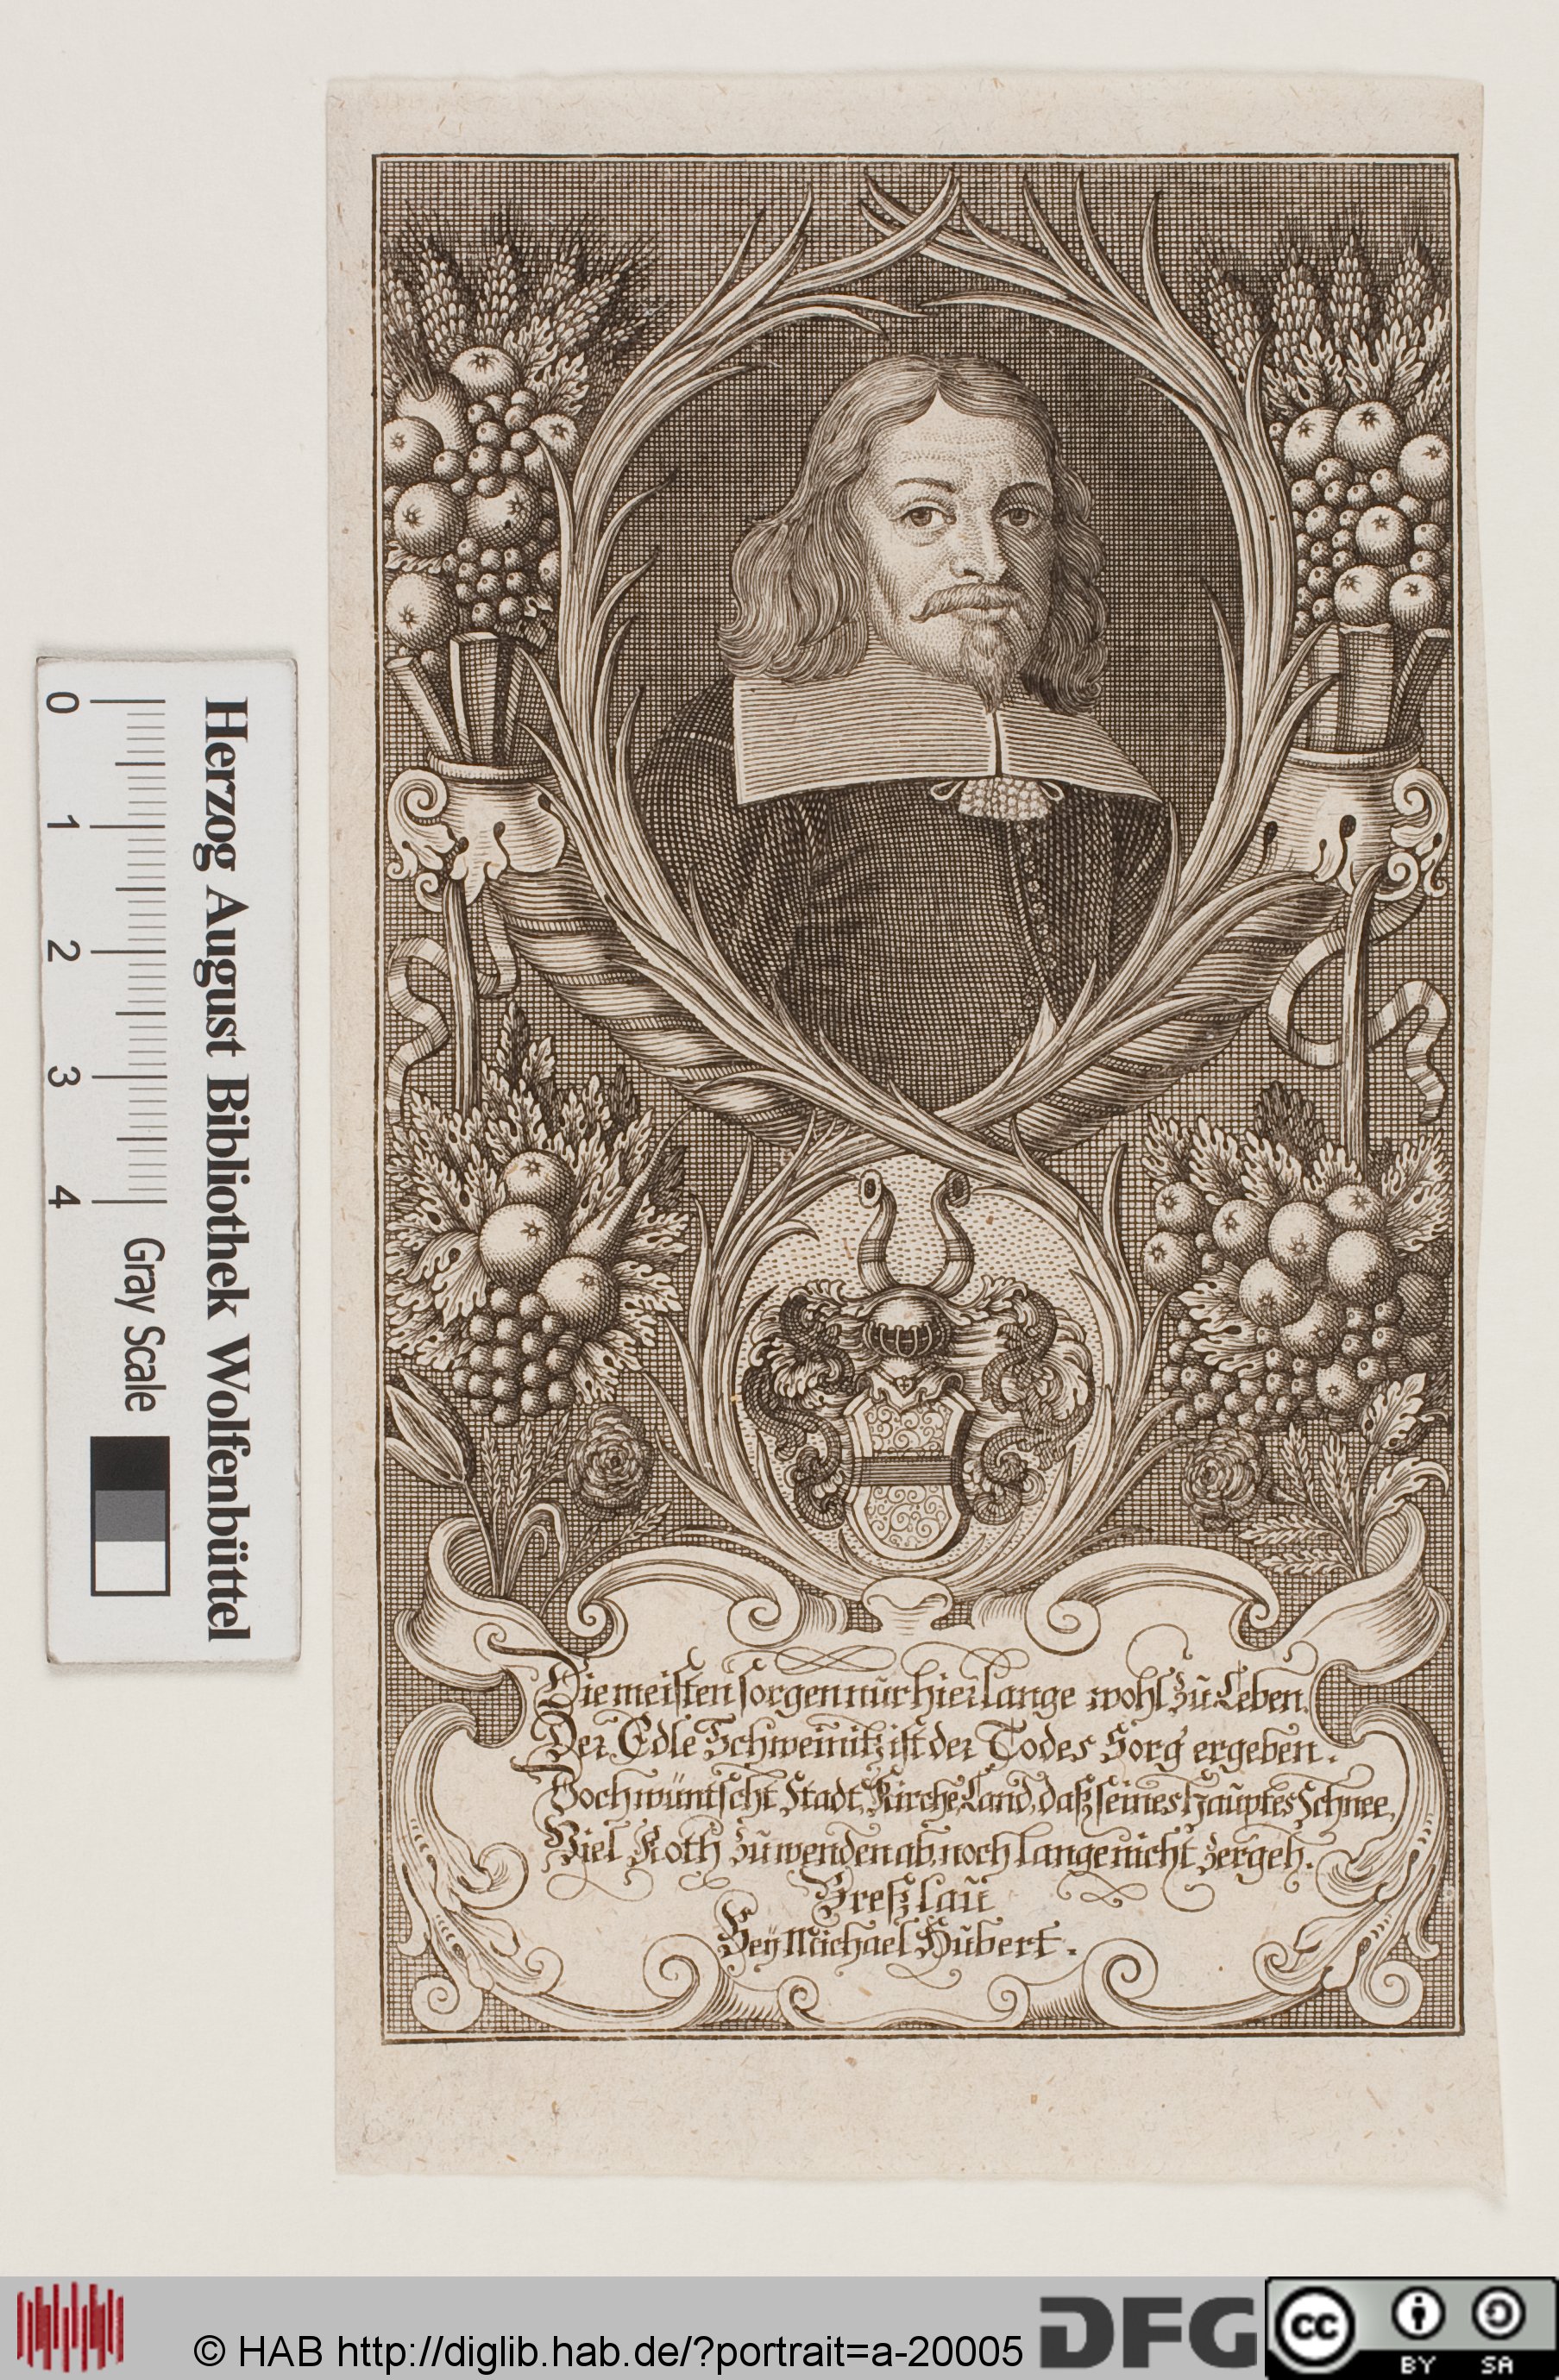 Die meisten sorgen nur hier lange wohl zu Leben.
Der Edle Schweinitz ist der Todes Sorg ergeben.
Doch wüntscht Stadt, Kirche, Land, daß seines Hauptes Schnee,
Viel Noth zu wenden ab, noch lange nicht zergeh.
Breßlau
Bey Michael Hubert.
Herzog August Bibliothek Wolfenbüttel
0 1 2 3 4 Gray Scale
© HAB http://diglib.hab.de/?portrait=a-20005
DFG
cc BY SA